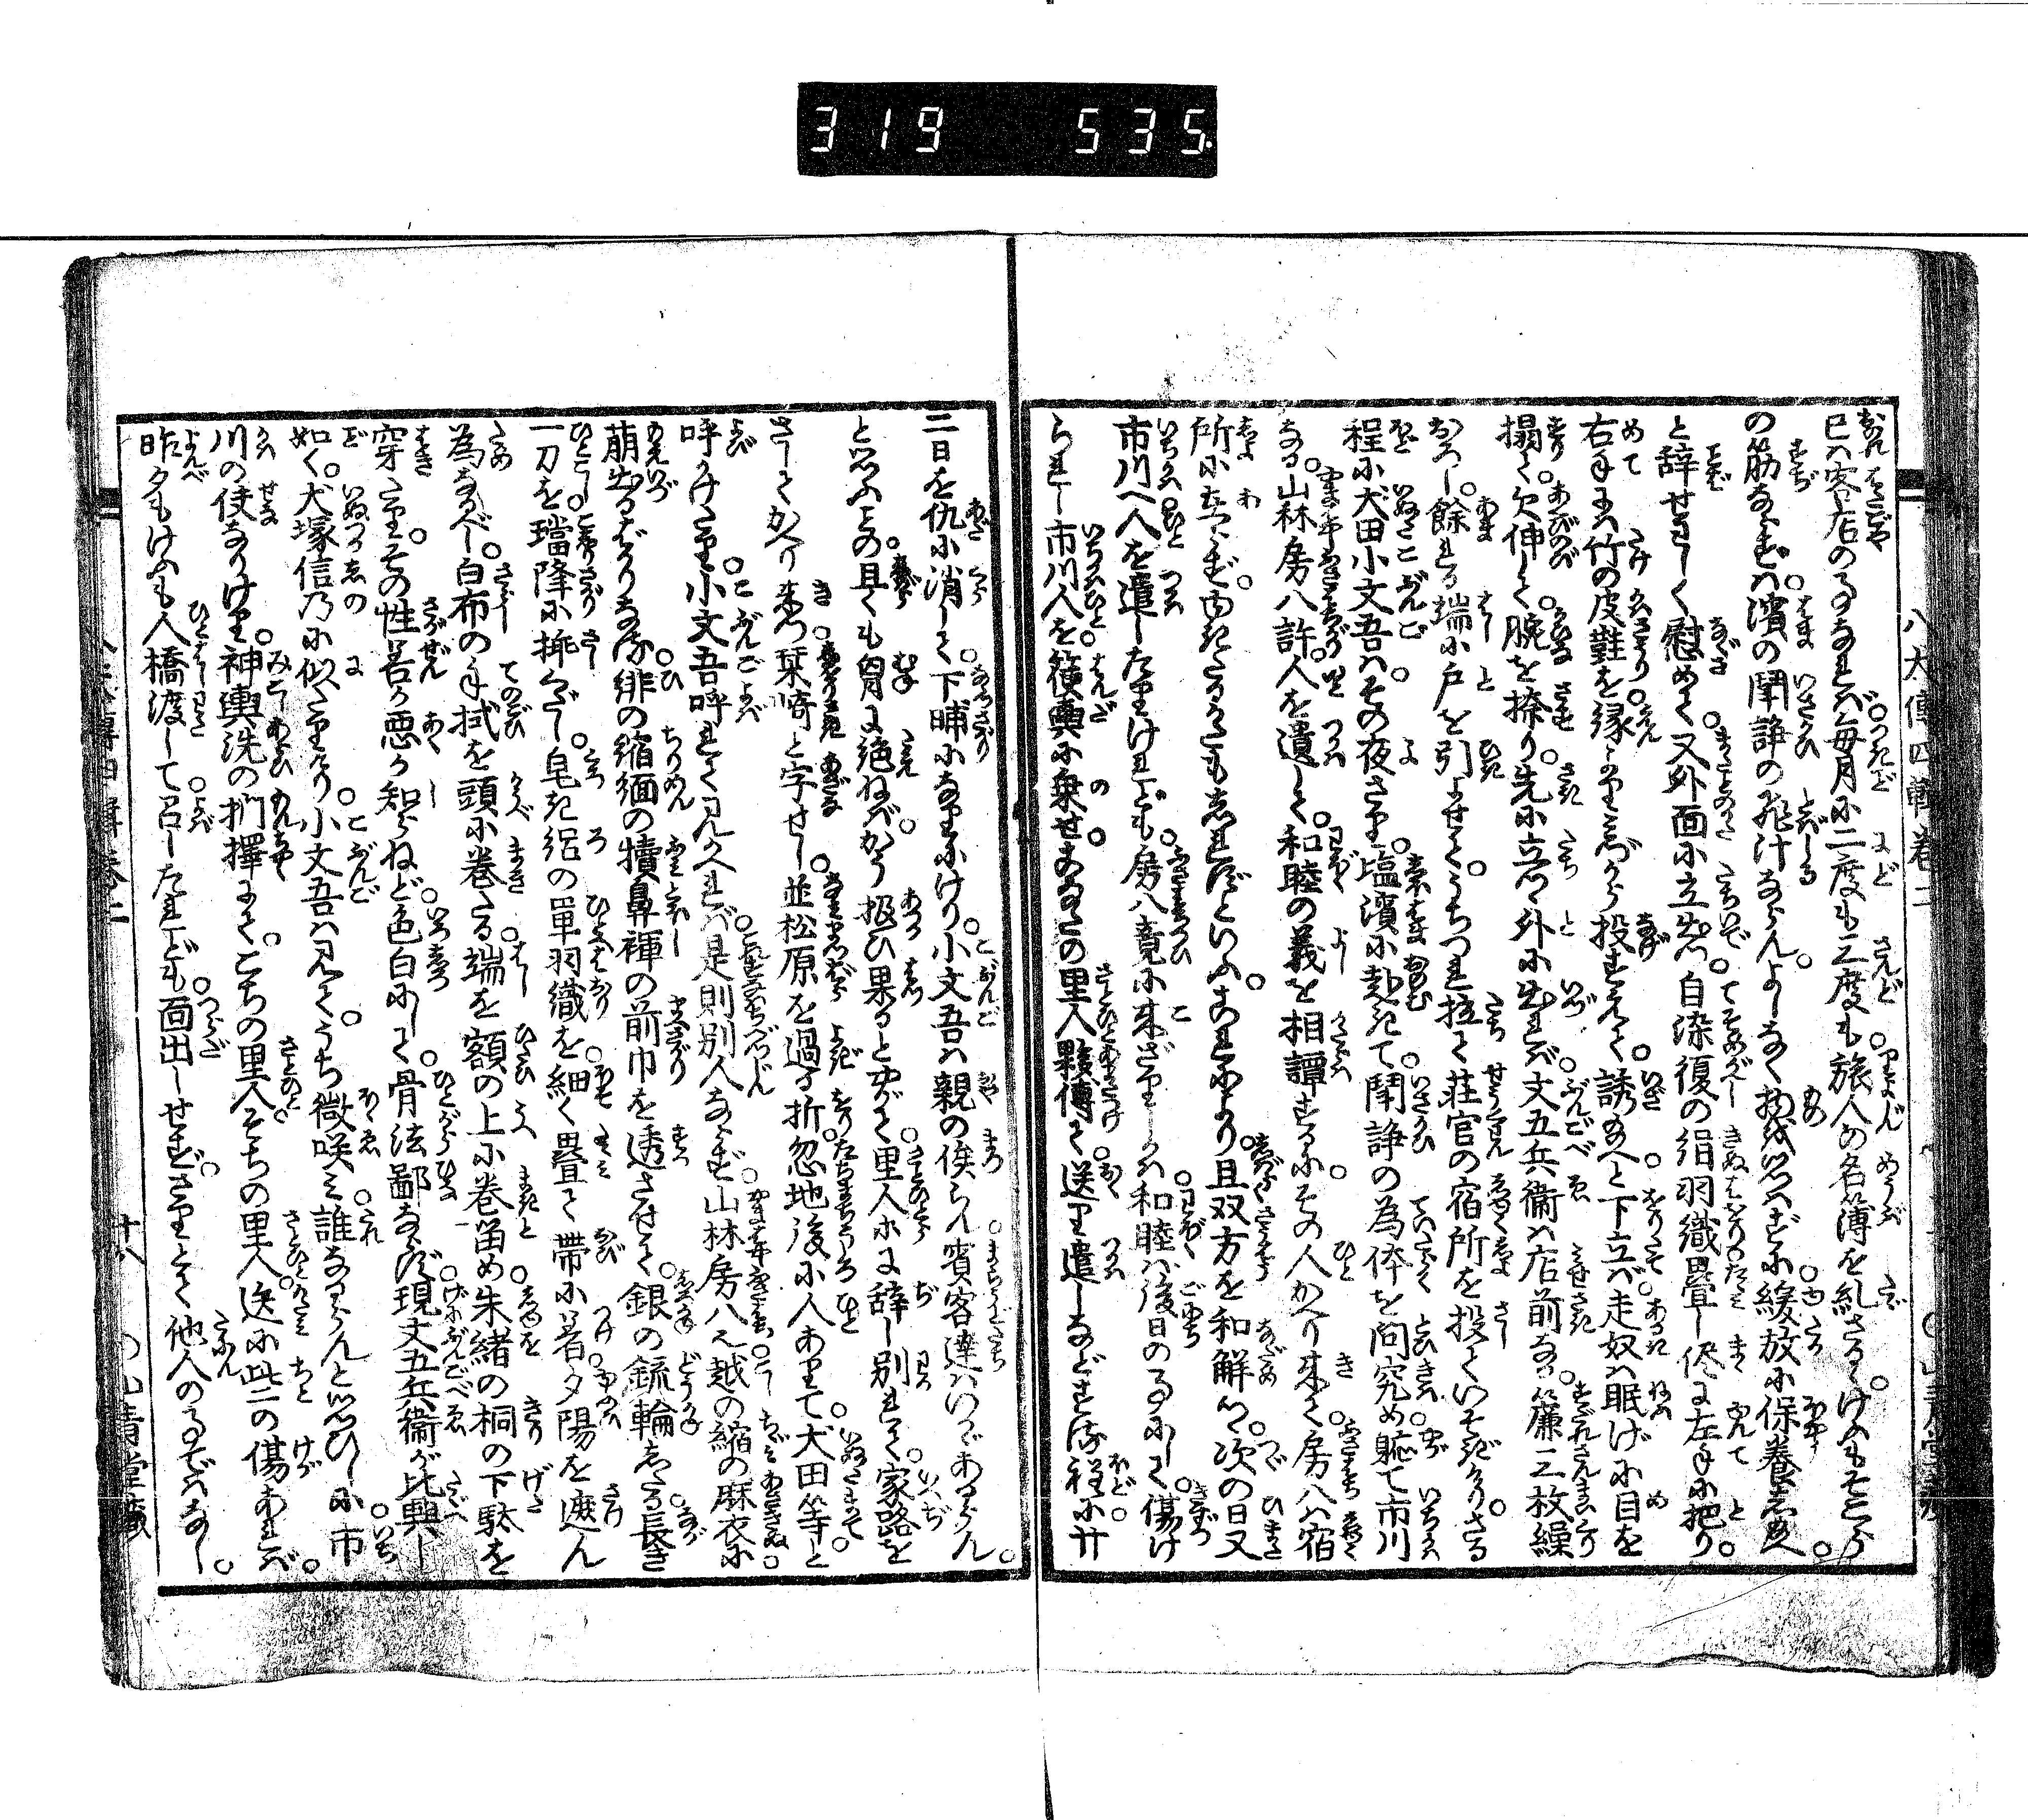 319 535
八犬傳四輯卷二
己は客店の事なれば。毎月に二度も三度も。旅人の名簿を糺さる。けふもそこら
の筋ならずは。濱の鬪諍の飛汁ならん。よしなく物な思はずに。緩放に保養し給へ。
と辞せきしく慰めて。又外面に立出。自染復の絹羽織。疊し侭に左手に把り。
右手には竹の皮鞋を。縁より投すえて。誘給へと下立ば。走奴は眠げに目を
搨て。欠伸して。腕を捺り。先に立て外に出れば。文五兵衞は店前なる。簾三枚繰
おろし。餘れる端に戸を引よせて。うちつれ立て莊官の宿所を投ていそぎけり。さる
程に犬田小文吾は。その夜さり。塩濱に赴きて。鬪諍の為体を問究め。軈て市川
なる。山林房八許。人を遣して。和睦の義を相譚するに。その人かへり来て。房八は宿
所に在らず。ゆきたるかたもしれずといふ。これにより且双方を和解つ。次の日又
市川へ人を遣したりけれども。房八竟に来ざりしかは。和睦は後日の事にして。傷け
られし市川人を。箯輿に乗せ。こなたの里人夥傅て。送り遣しなどする程に。廿
二日を仇に消して。下晡になりにけり。小文吾は親の俟らん。賓客達はいかであらん。
と思ふものから。且くも胸に絶ねば。かう扱ひ果るとやがて。里人に辞し別れて。家路を
さしてかへり来つ。栞崎と字せし。並松原を過る折。忽地後に人ありて。犬田等と
呼かけたり。小文吾呼れて見かへれば。是則別人ならず。山林房八。越の縮の麻衣に
萠出るばかりなる。緋の縮緬の犢鼻褌の前巾を透させて。銀の鎺輪したる。長き
一刀を璫降に挿なし。皂き絽の單羽織を。細く疊て帶に著。夕陽を遮ん
為なるべし。白布の手拭を頭に巻たる。端を額の上に巻畄め。朱緒の桐の下駄を
穿たり。その性善か悪か知らねど。色白にして。骨法鄙ならず。現文五兵衞が比興し
如く。犬塚信乃に似たりけり。小文吾は見てうち微咲み。誰ならんと思ひしに。市
川の使なりけり。神輿洗の捫擇にて。こちの里人。そちの里人。迭に些の傷あれば。
昨夕もけふも人橋渡して。呂したれども。面出しせず。さりとて他人の事ではなし。
十八
山青堂藏